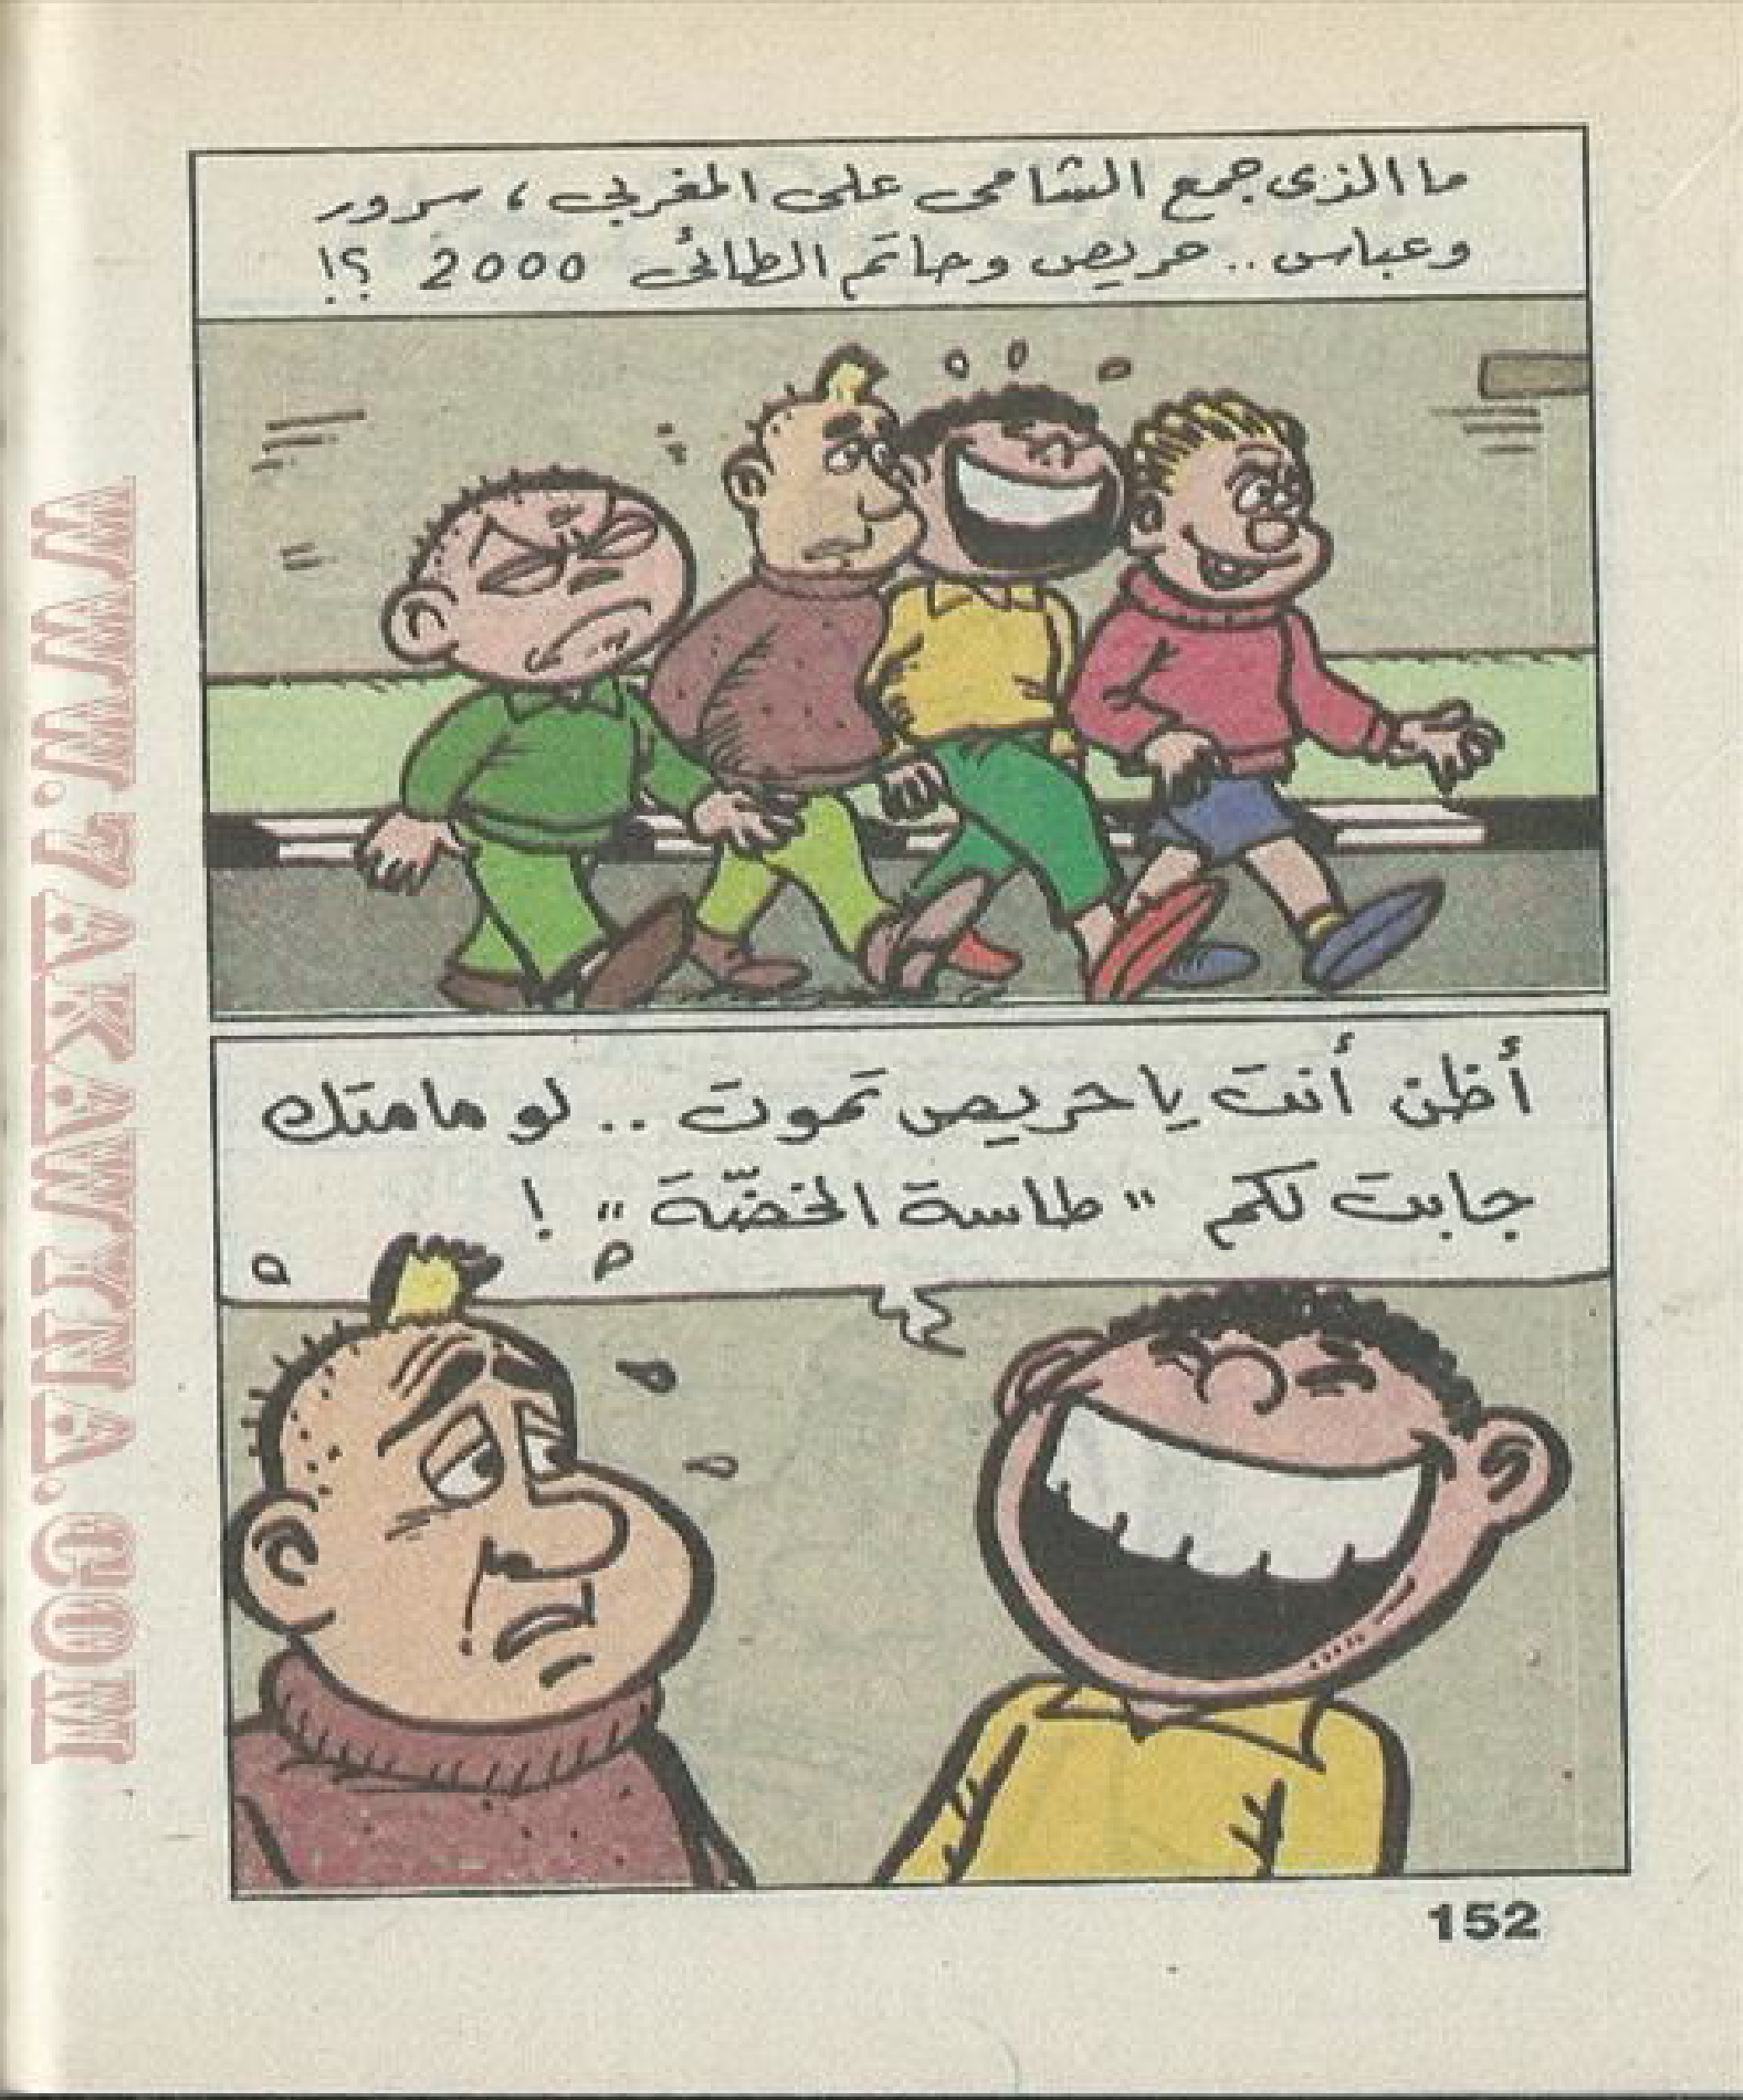 ما الذى جمع الشامى على المغربى ، سرور
وعباس .. حريص وحاتم الطائى 2000 ؟!
أظن أنت يا حريص تموت .. لو مامتك
جابت لكم " طاسة الخضّة " !
152
WWW.7AKAWINA.COM